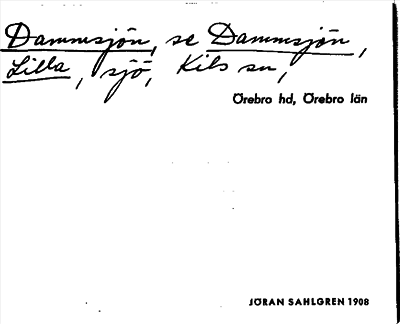 Dammsjön, se Dammsjön,
Lilla, sjö, Kils sn,
Örebro hd, Örebro län
JÖRAN SAHLGREN 1908